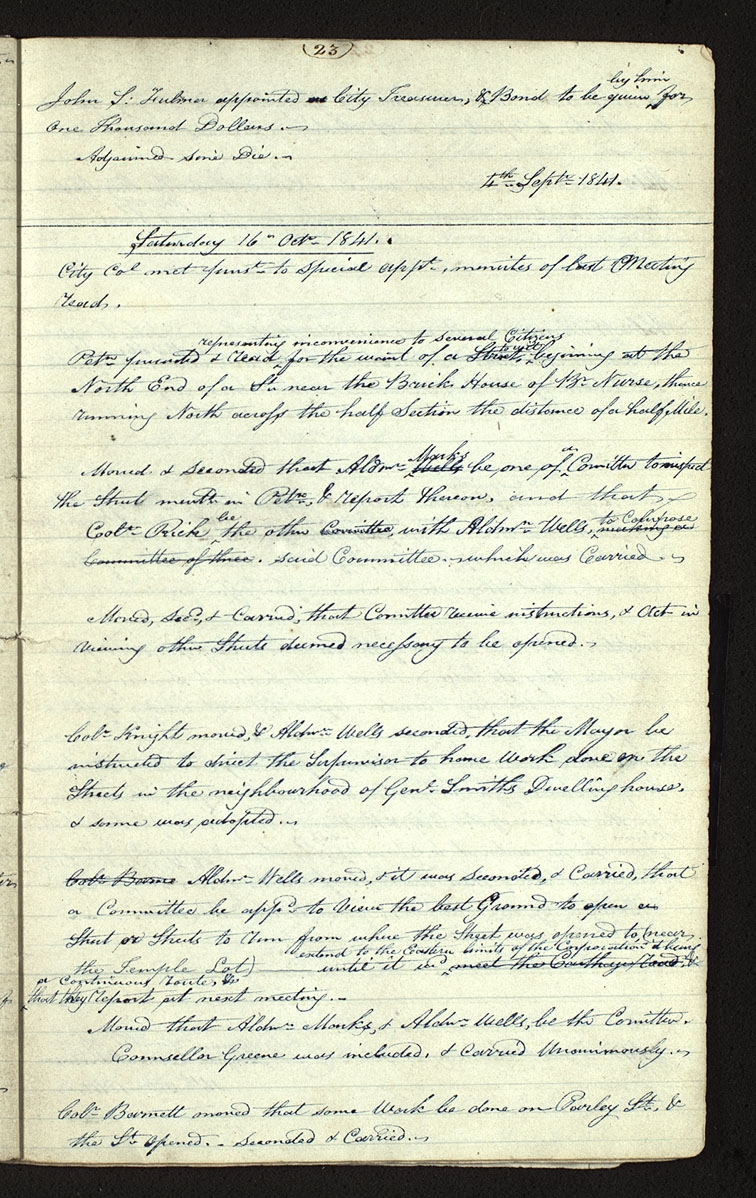 23
by him
John S. Fulmer appointed as City Treasurer, & Bond to be given, for
One Thousand Dollars.
Adjourned Sine Die.
4th Septr 1841.
Saturday 16th Octr 1841.
City Col met purst to Special appt, minutes of last Meeting
read.
representing inconvenience to several Citizens
Petn presented & read, for the want of a Street, beginning at the
North End of a St. near the Brick House of Br Nurse, thence
running North across the half Section the distance of a half Mile.
Marks a
Moved & seconded that Aldmn Wells be one of Comittee to inspect
the Street mentd in Petn, & report thereon, and that
be to Compose
Coolr Rich the other Committee, with Aldmn Wells, making a
Committee of three. said Committee. which was Carried.
Moved, Secd, & Carried, that Comittee receive instructions, & Act in
viewing other Streets deemed necessary to be opened.
Colr Knight moved, & Aldmn Wells seconded, that the Mayor be
instructed to direct the Supervisor to have Work done on the
Streets in the neighbourhood of Genl Smith's Dwelling house.
& same was adopted.
Colr Barne Aldmn Wells moved, & it was Seconded, & Carried, that
a Committee be appd to View the best Ground to open a
Street or Streets to run from where the Street was opened to (near
extend to the Eastern limits of the Corporation & being
the Temple Lot) until it meet the Carthage Road, &
a Continuous route, &
that they report at next meeting.
Moved that Aldmn Marks, & Aldmn Wells, be the Comittee.
Counsellor Greene was included, & Carried Unanimously.
Colr Barnett moved that some Work be done on Parley St., &
the St. opened. Seconded & Carried.